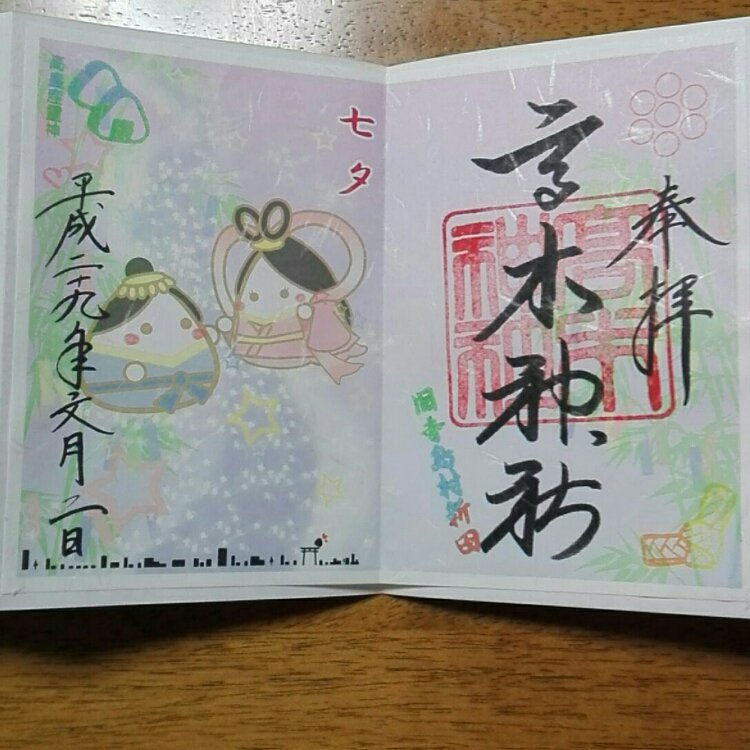 奉拝
高木神社
高木神社
旧寺島村新田
七夕
高皇産霊神
平成二十九年文月二日